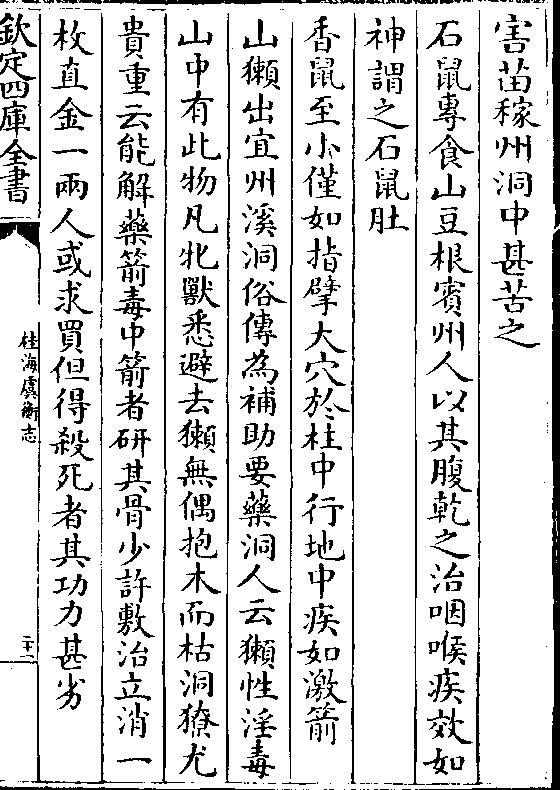 害苗稼州洞中甚苦之
石鼠專食山豆根賓州人以其腹乾之治咽喉疾效如
神謂之石鼠肚
香鼠至小僅如指擘大穴於柱中行地中疾如激箭
山獺出宜州溪洞俗傳為補助要藥洞人云獺性淫毒
山中有此物凡牝獸悉避去獺無偶抱木而枯洞獠尤
貴重云能解藥箭毒中箭者研其骨少許敷治立消一
枚直金一兩人或求買但得殺死者其功力甚劣
欽定四庫全書
桂海虞衡志
二十一